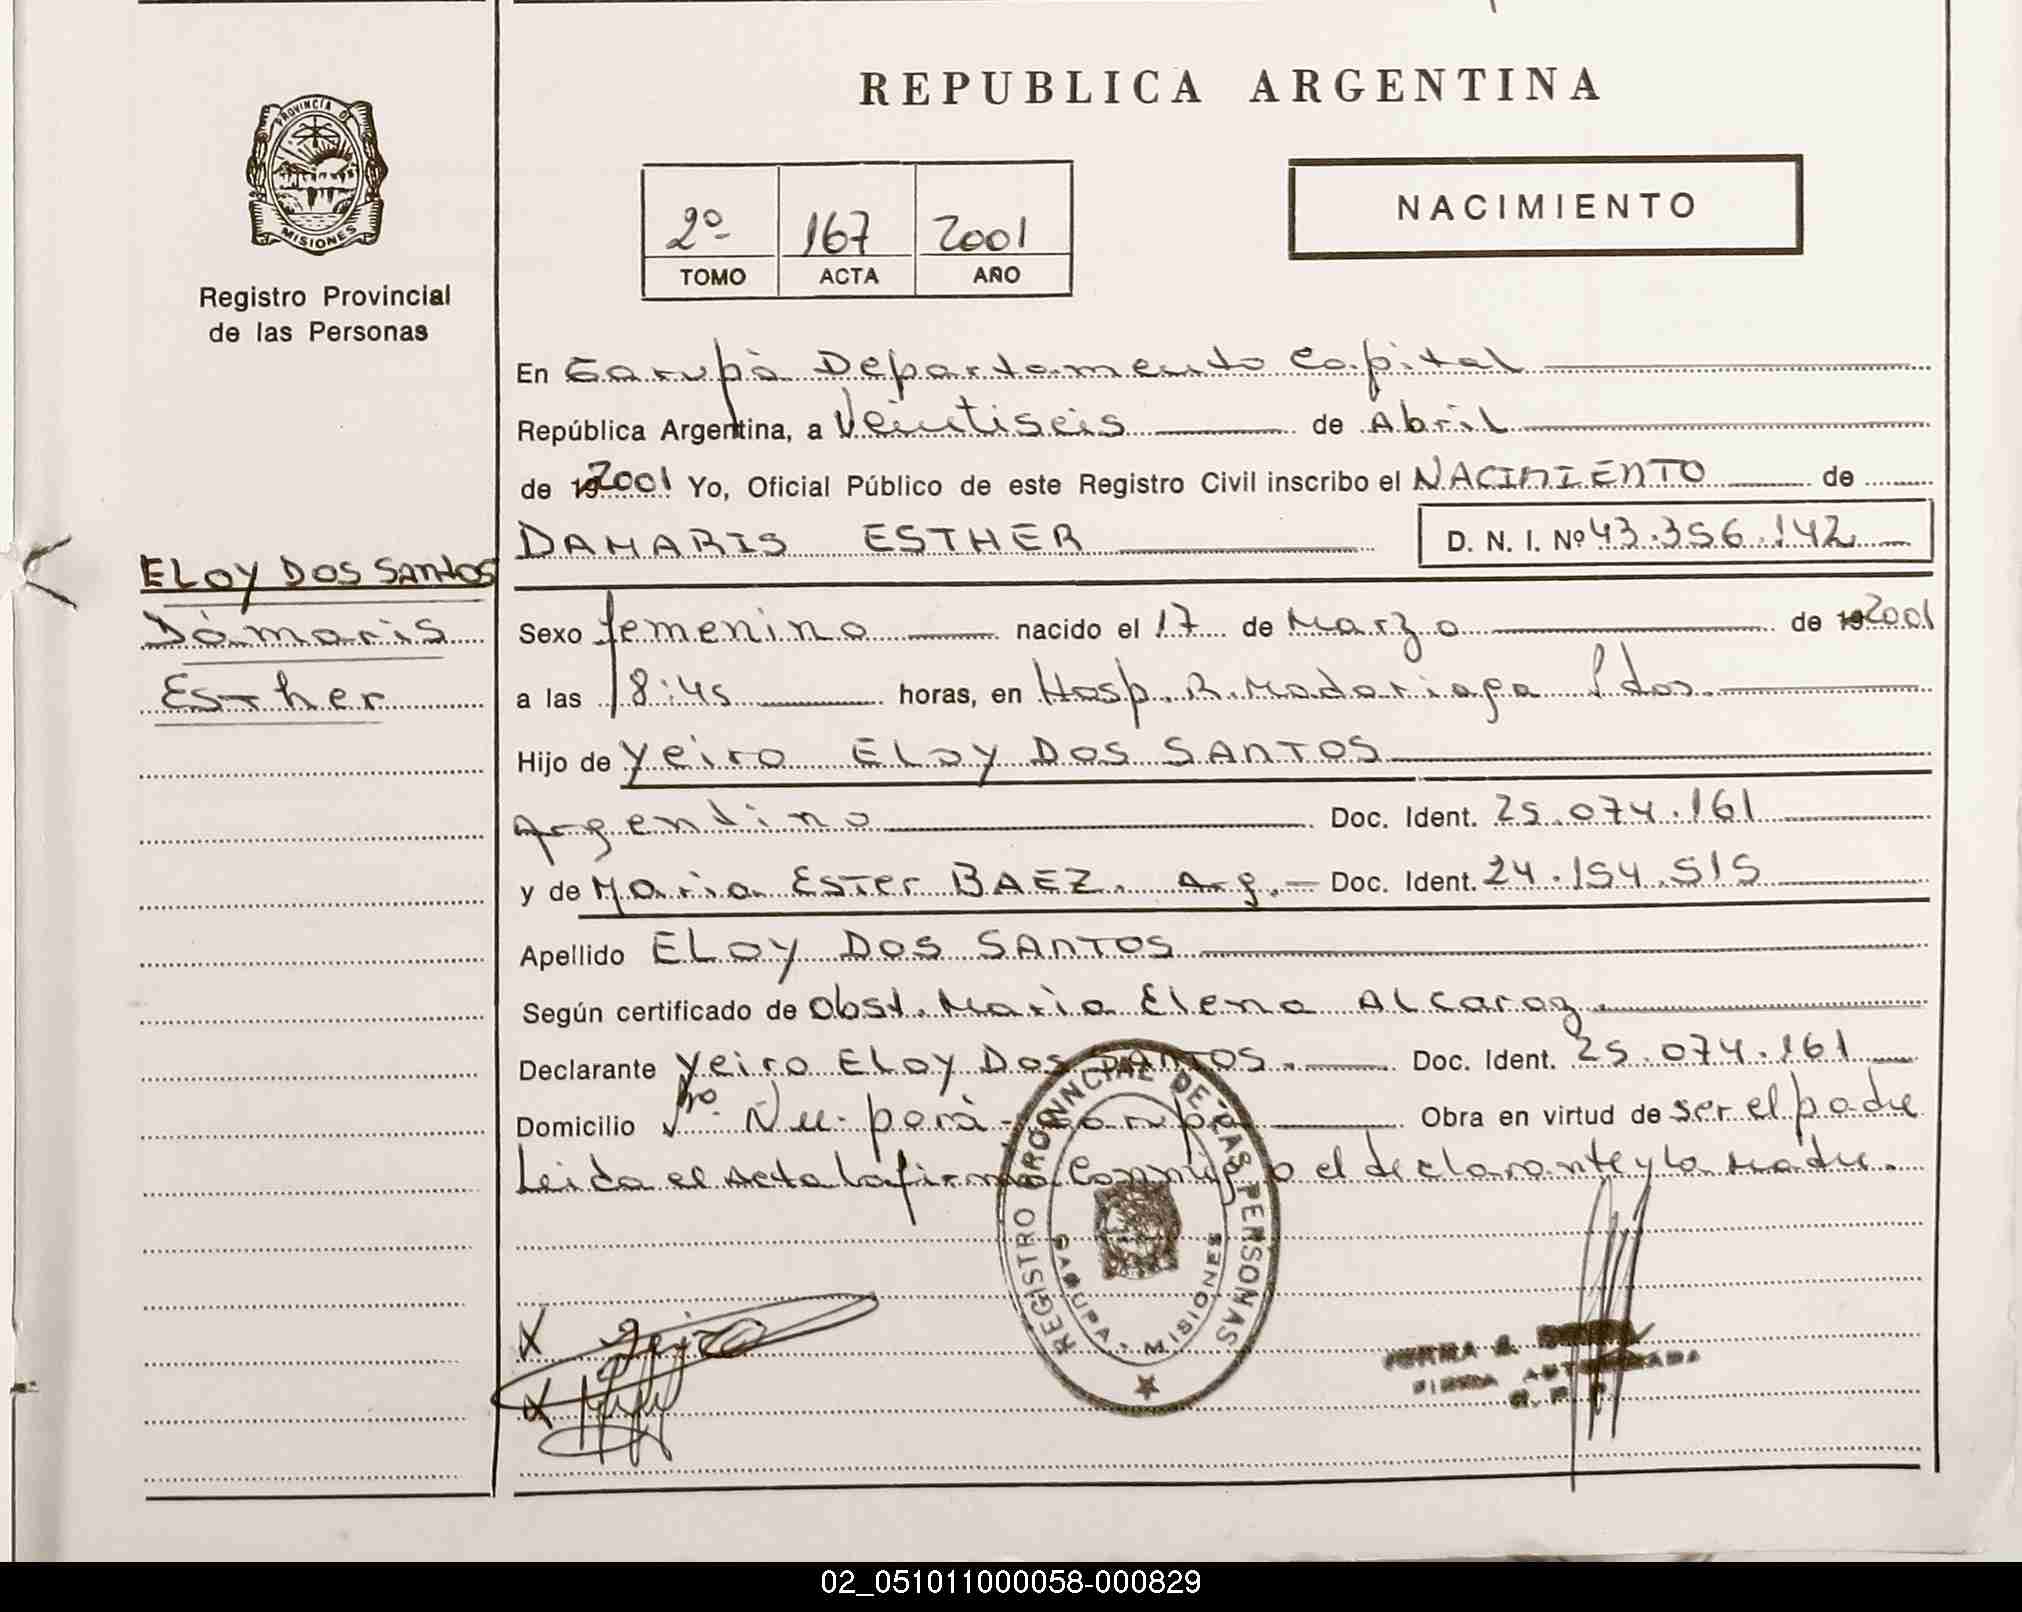 REPUBLICA ARGENTINA
PROVINCIA DE
MISIONES
Registro Provincial
de las Personas
2º 167 2001
TOMO ACTA AÑO
NACIMIENTO
En Garupà Departamento Capital
República Argentina, a Veintiseis de Abril
de 192001 Yo, Oficial Público de este Registro Civil inscribo el NACIMIENTO de
DAMARIS ESTHER D. N. I. Nº 43.356.142
ELOY DOS SANTOS
Dámaris
Esther
Sexo femenino nacido el 17 de Marzo de 192001
a las 18:45 horas, en Hosp. R. Madariaga Pdos.
Hijo de Yeiro ELOY DOS SANTOS
Argentino Doc. Ident. 25.074.161
y de Maria Ester BAEZ. Arg. Doc. Ident. 24.154.515
Apellido ELOY DOS SANTOS
Según certificado de Obst. Marìa Elena Alcaraz.
Declarante Yeiro ELOY DOS SANTOS. Doc. Ident. 25.074.161
Domicilio Ñu-porà - Garupà Obra en virtud de ser el padre
Leida el Acta la firma Conmigo el declarante y la Madre.
REGISTRO PROVINCIAL DE LAS PERSONAS
GARUPA - MISIONES
X Yeiro
X
FIRMA AUTORIZADA
R. P. P.
02_051011000058-000829